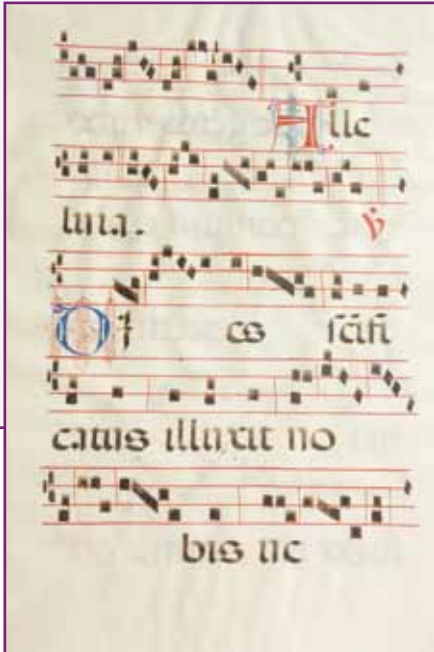 Alle
luia. ℣
Di es sc̄ifi
catus illuxit no
bis ue